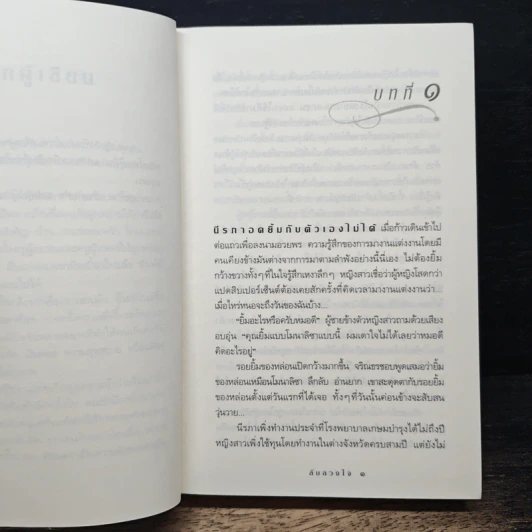 บทที่ ๑
นีรภาอดยิ้มกับตัวเองไม่ได้ เมื่อก้าวเดินเข้าไป
ต่อแถวเพื่อลงนามอวยพร ความรู้สึกของการมางานแต่งงานโดยมี
คนเคียงข้างมันต่างจากการมาตามลำพังอย่างนี้นี่เอง ไม่ต้องยิ้ม
กว้างขวางทั้งๆ ที่ในใจรู้สึกเหงาลึกๆ หญิงสาวเชื่อว่าผู้หญิงโสดกว่า
แปดสิบเปอร์เซ็นต์ต้องเคยสักครั้งที่คิดเวลามางานแต่งงานว่า...
เมื่อไหร่หนอจะถึงวันของฉันบ้าง...
"ยิ้มอะไรหรือครับหมอดี" ผู้ชายข้างตัวหญิงสาวถามด้วยเสียง
อบอุ่น "คุณยิ้มแบบโมนาลิซาแบบนี้ ผมเดาใจไม่ได้เลยว่าหมอดี
คิดอะไรอยู่"
รอยยิ้มของหล่อนเปิดกว้างมากขึ้น จริณธรชอบพูดเสมอว่ายิ้ม
ของหล่อนเหมือนโมนาลิซา ลึกลับ อ่านยาก เขาสะดุดตากับรอยยิ้ม
ของหล่อนตั้งแต่วันแรกที่ได้เจอ ทั้งๆ ที่วันนั้นค่อนข้างจะสับสน
วุ่นวาย...
นีรภาเพิ่งทำงานประจำที่โรงพยาบาลเกษมบำรุงได้ไม่ถึงปี
หญิงสาวเพิ่งใช้ทุนโดยทำงานในต่างจังหวัดครบสามปี แต่ยังไม่
ลับลวงใจ ๑